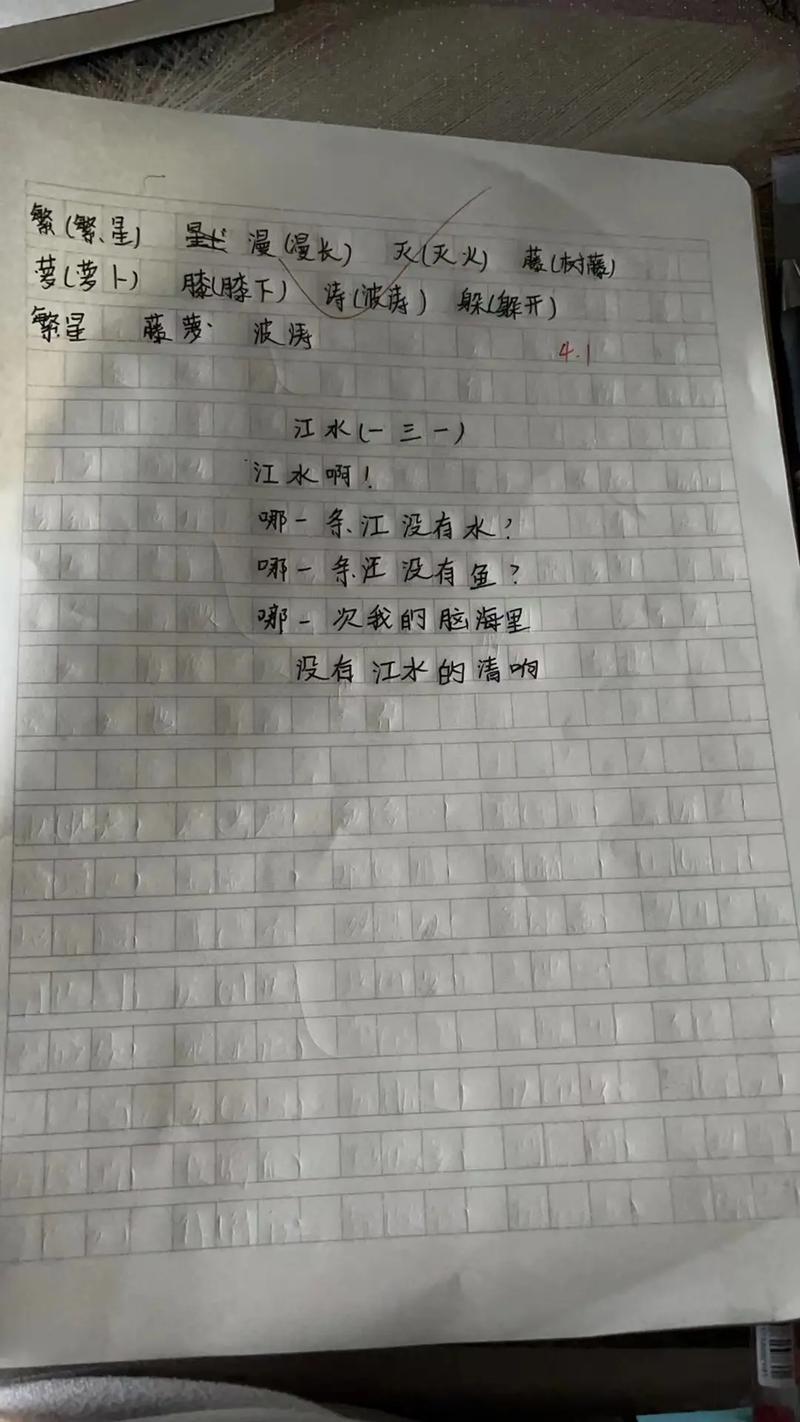 繁(繁星) 漫(漫长) 灭(灭火) 藤(树藤)
萝(萝卜) 膝(膝下) 涛(波涛) 躲(躲开)
繁星 藤萝 波涛
4.1
江水(一三一)
江水啊!
哪一条江没有水?
哪一条江没有鱼?
哪一次我的脑海里
没有江水的清响